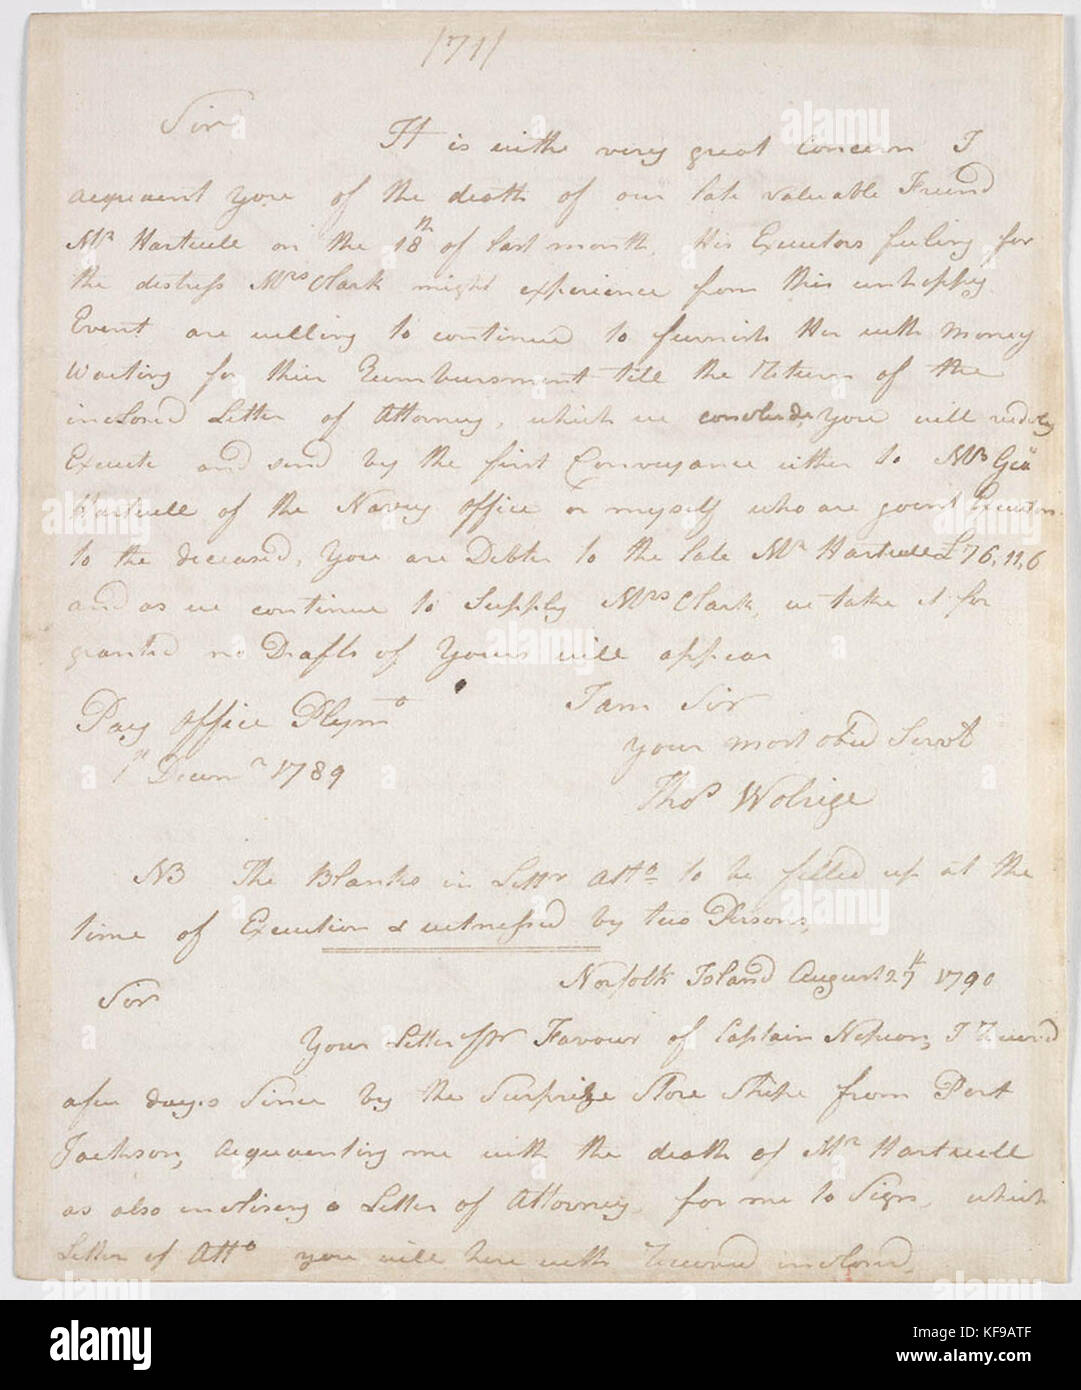 /71/
Sir
It is withe very great Concern I
acquaent you of the death of our late valuable Freind
Mr Hartwell on the 18th of last month, His Executors feeling for
the distress Mrs Clark might experience from this unhappy
Event are willing to continued to furnish Her with Money
Waiting for their Rembursment till the Return of the
inclosed Letter of Attorney, which we conclude you will redely
Execute and send by the first Conveyance either to Mr Geo
Hartwell of the Navey office or myself who are joint Executors
to the deceased, You are Debter to the late Mr Hartwell £76,11,6
and as we continue to Supply Mrs Clark, we take it for
granted no Drafts of Yours will appear
I am Sir
Pay office Plymo
your most obed Servt
1st Decemr 1789
Thos Wolrige
NB The Blanks in Lettr Atto to be filled up at the
time of Execution & witnessed by two Persons,
Norfolk Island August 27th 1790
Sir
Your Letter pr Favour of Captain Nepean, I Receved
a few days Since by the Surprize Store Shipe from Port
Jackson, acquaenting me with the death of Mr Hartwell
as also inclosing a Letter of Attorney, for me to Sign, which
Letter of Atto you will here with Receved inclosed,
alamy
KF9ATF
www.alamy.com